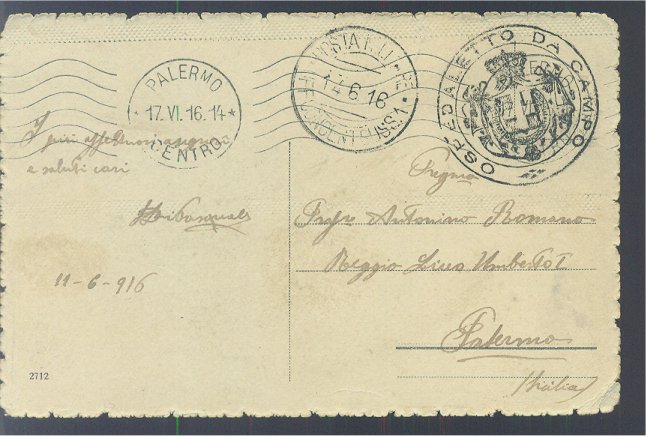 PALERMO
17.VI.16.14
CENTRO
POSTA
14.6.16
OSPEDALETTO DA CAMPO
I più affettuosi
e saluti cari
11-6-916
2712
Pregmo
Profre Antonino Romano
Reggio Liceo Umberto I
Palermo
(Sicilia)